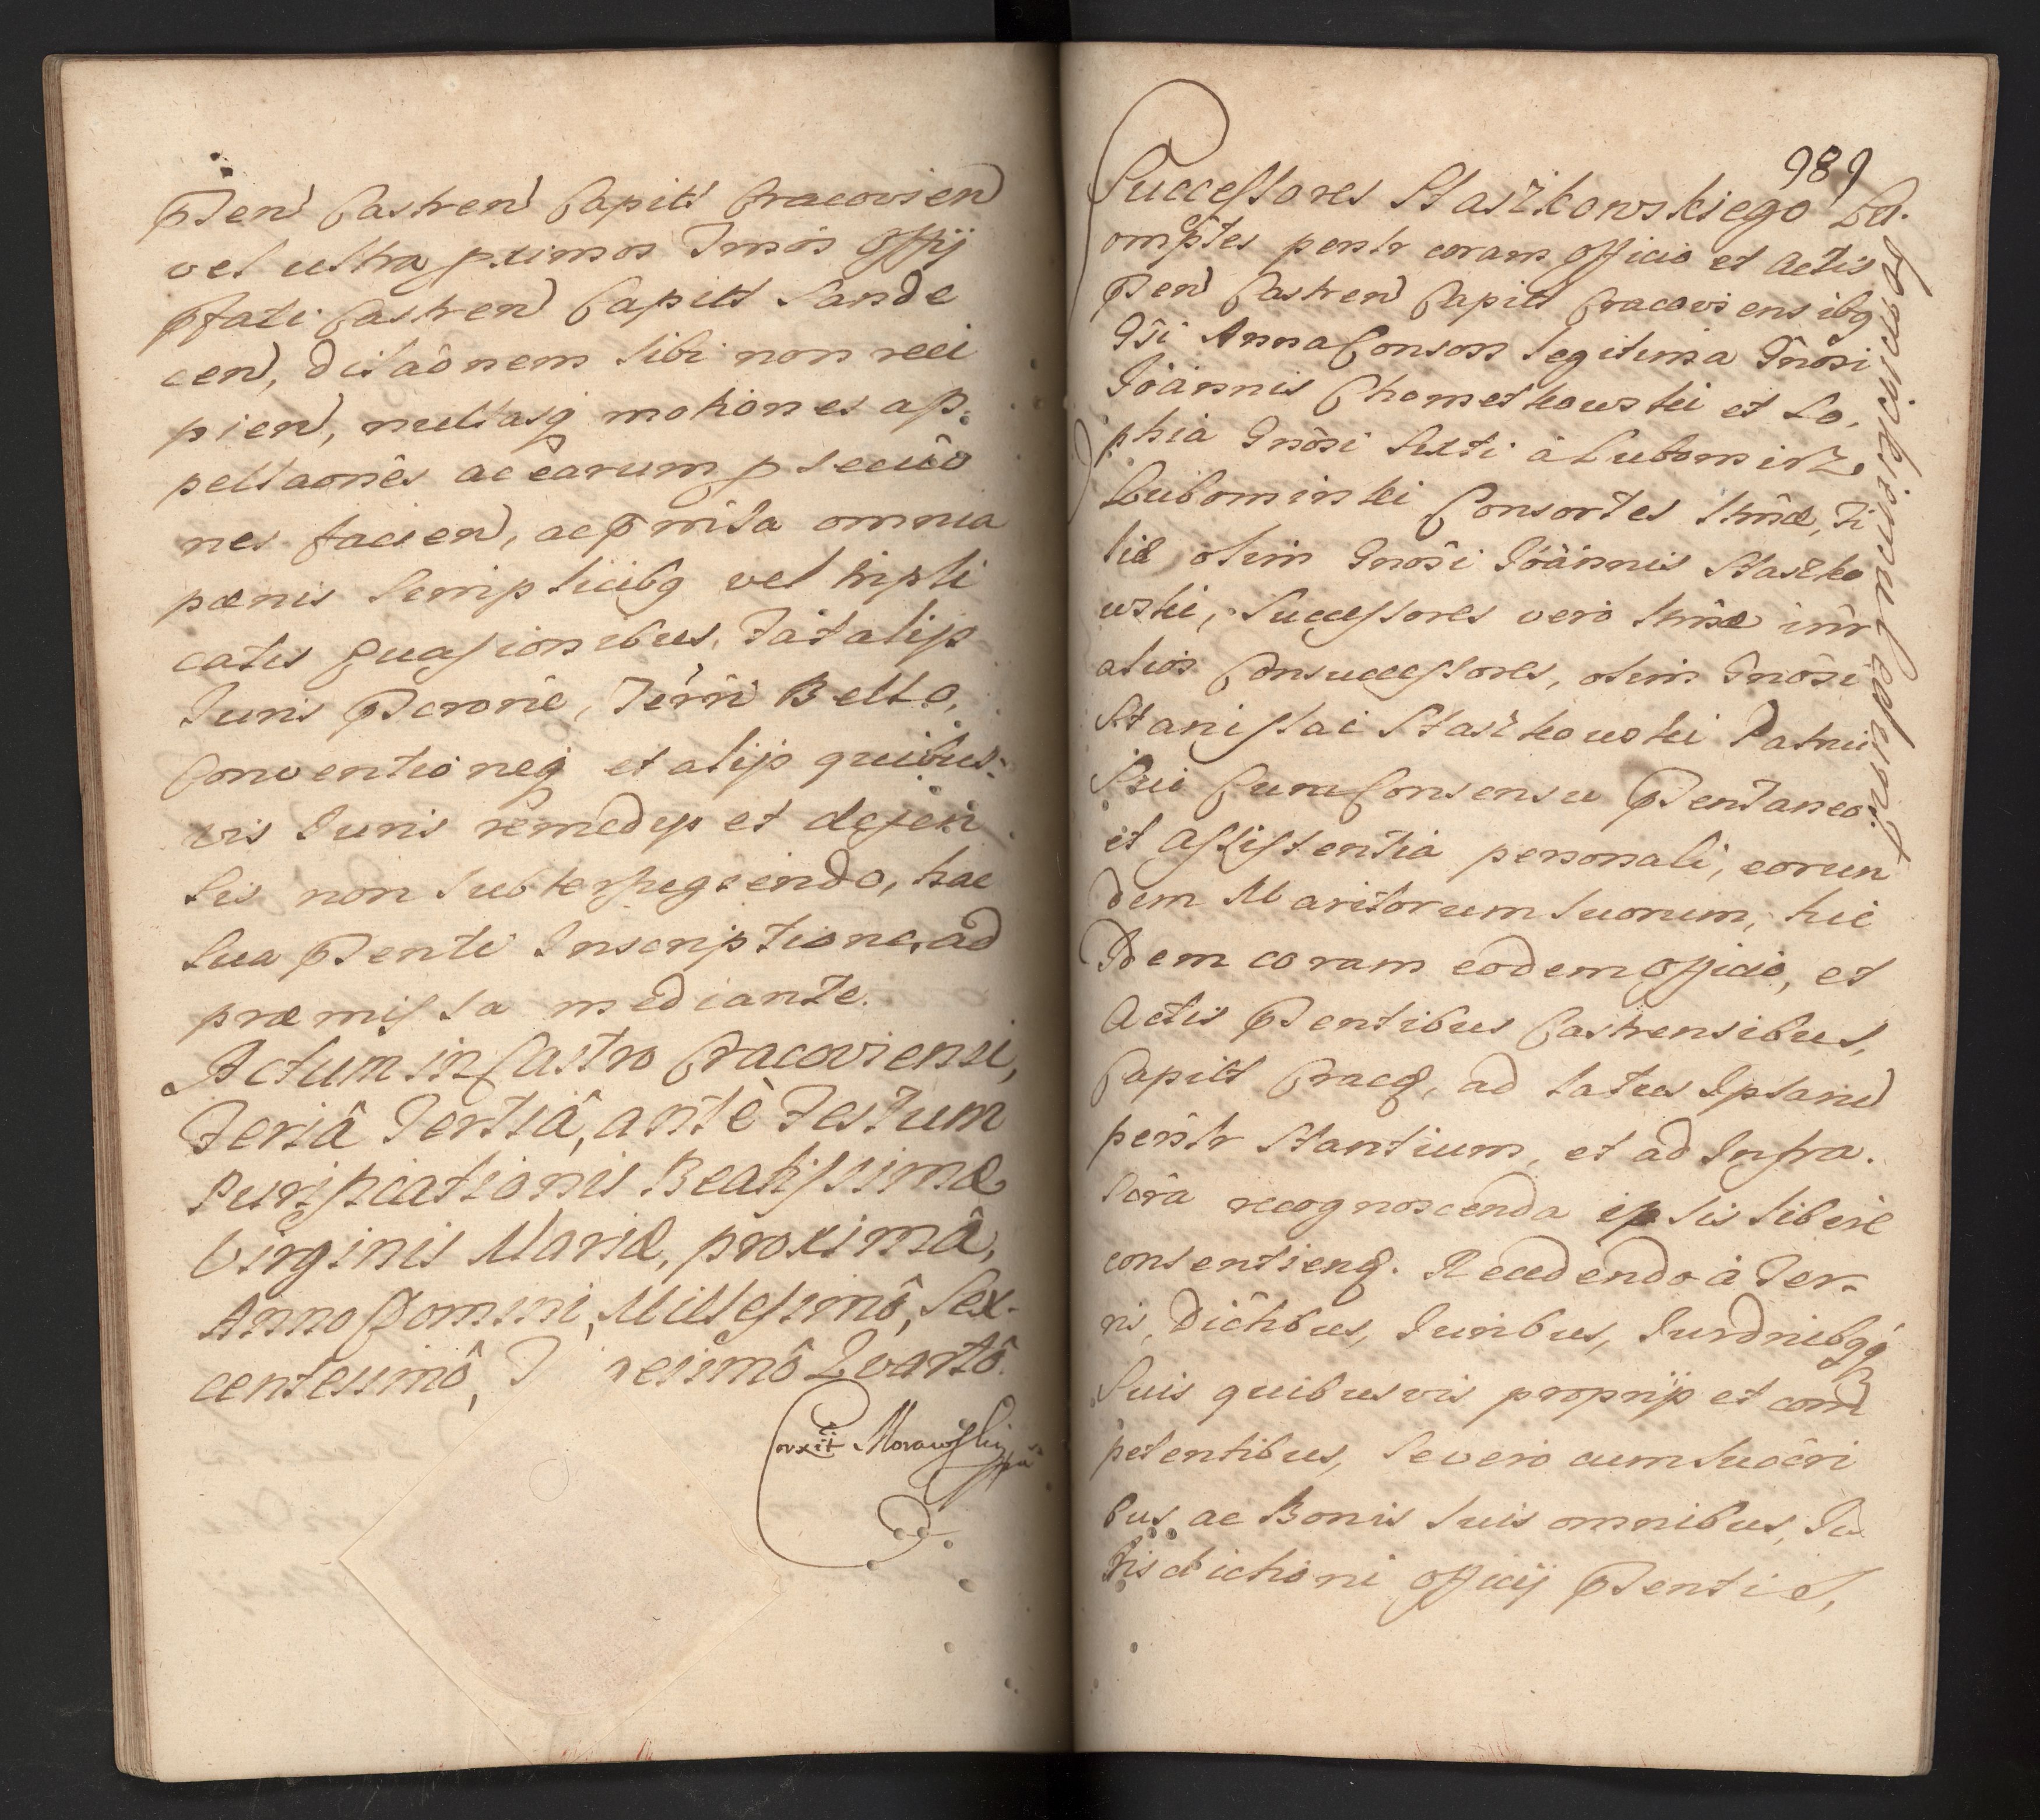 Pden Castren Capitl Cracovien
vel ultra pximos Tmôs Offij
Pfati Castren Capitl Sande
cen, Dilaônem sibi non reci
pien, nullasq motiones ap:
pellaônes ac earum psecuô
nes facien, ac pmisa omnia
pænis simplicibq vel tripli
catis quasionibus, Fatalijs
Juris
Conventioneq et alijs quibus:
vis Juris remedys et defen
sis non subterfugiendo, hac
sua Psenti Inscriptione, ad
præmissa mediante.
Actum in Castro Cracoviensi,
Feriâ Tertiâ, antè Festum
Purificationis Beatissimæ
Virginis Mariæ, proximâ,
Anno Domini, Millesimô, Sex-
centesimô, T resimô Quartô.
Corxit Morawski
989
Successores Staszkowskiego La.
omptes psntr coram Officio et Actis
Psen Castren Capitl Cracoviensibq
Gsi Anna Consors legitima Gnôsi
Jôánnis Chometkowski et So.
phia Gnôsi Sixti à Lubomirz
Lubomirski Consortes Fi
liæ olim Gnôsi Jôánnis Staszko
wski, Successores vero
alios Consuccessores, olim Gnôsi
Stanislai Staszkowski Patrui
Sui Cum Consensu Psentaneo
et Assistentia personali, eorun
dem Maritorum suorum, hic
Idem coram eodem Officio, et
Actis Psentibus Castrensibus,
Capitl Cracq, ad latus Ipsarũ
psntr Stantium, et ad Infra.
scrâ recognoscenda ipsis liberè
consentienq. Recedendo à Ter-
ris, Dictibus, Juribus, Jurdnibqq
Suis quibusvis proprijs et com
petentibus, se vero cum succri
bus ac Bonis suis omnibus, Ju
risdictioni Officij Psenti S,